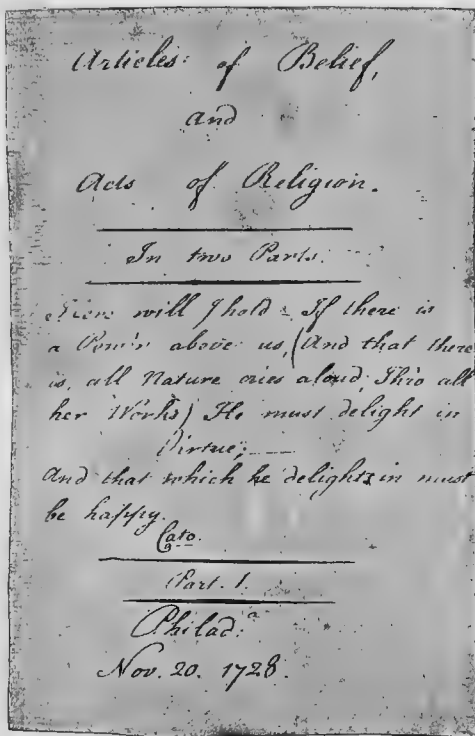 Articles of Belief,
and
Acts of Religion.
In two Parts.
Here will I hold - If there is
a Pow'r above us, (And that there
is, all Nature cries aloud, Thro' all
her Works) He must delight in
Virtue;
And that which he delights in must
be happy.
Cato.
Part. I.
Philad:a
Nov. 20. 1728.